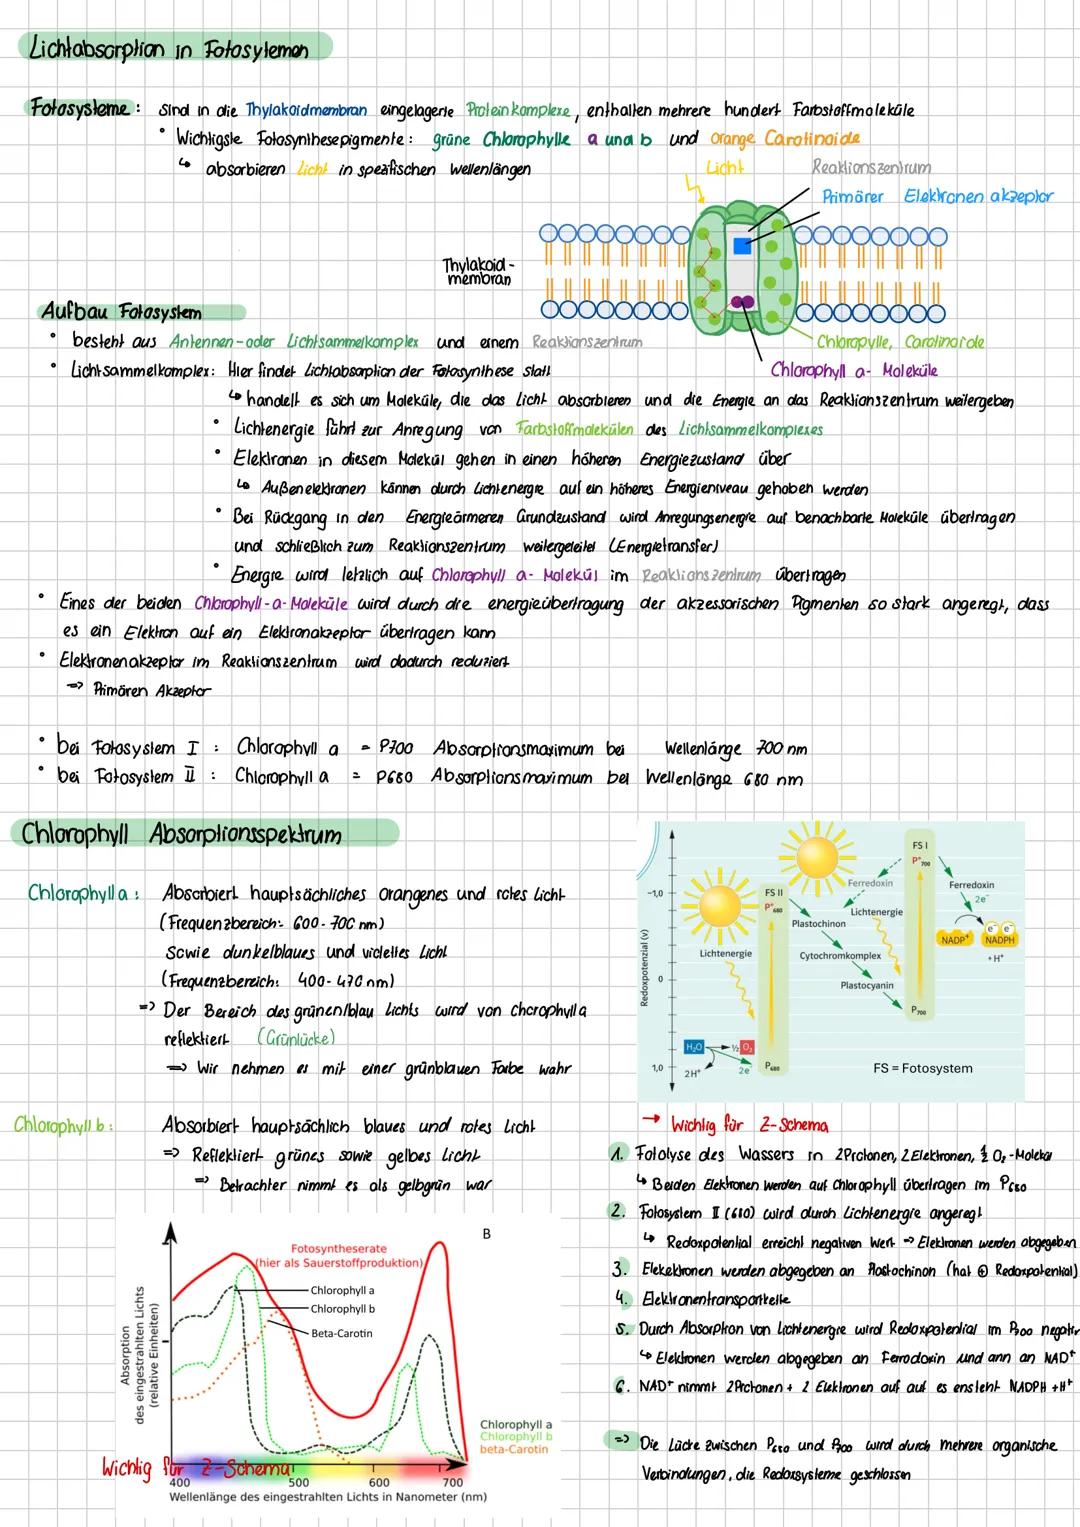 Lichtabsorption in Fotosytemen
Fotosysteme: sind in die Thylakoidmembran eingelagerte Proteinkomplexe, enthalten mehrere hundert Farbstoffmoleküle
° Wichtigste Fotosynthesepigmente: grüne Chlorophylle a und b und orange Carotinoide
↳ absorbieren Licht in spezifischen Wellenlängen
Licht
Reaktionszentrum
Primärer Elektronen akzeptor
Thylakoid-
membran
Chloropylle, Carotinoide
Chlorophyll a- Moleküle
Aufbau Fotosystem
° besteht aus Antennen-oder Lichtsammelkomplex und einem Reaktionszentrum
° Lichtsammelkomplex: Hier findet Lichtabsorption der Fotosynthese statt
↳ handelt es sich um Moleküle, die das Licht absorbieren und die Energie an das Reaktionszentrum weitergeben
° Lichtenergie führt zur Anregung von Farbstoffmolekülen des Lichtsammelkomplexes
° Elektronen in diesem Molekül gehen in einen höheren Energiezustand über
↳ Außenelektronen können durch Lichtenergie auf ein höheres Energieniveau gehoben werden
° Bei Rückgang in den Energieärmeren Grundzustand wird Anregungsenergie auf benachbarte Moleküle übertragen
und schließlich zum Reaktionszentrum weitergeleitet (Energietransfer)
° Energie wird letzlich auf Chlorophyll a- Molekül im Reaktionszentrum übertragen
° Eines der beiden Chlorophyll-a-Moleküle wird durch die energieübertragung der akzessorischen Pigmenten so stark angeregt, dass
es ein Elektron auf ein Elektronakzeptor übertragen kann
° Elektronenakzeptor im Reaktionszentrum wird dadurch reduziert
=> Primären Akzeptor
° bei Fotosystem I : Chlorophyll a = P700 Absorptionsmaximum bei Wellenlänge 700 nm
° bei Fotosystem II : Chlorophyll a = P680 Absorptionsmaximum bei Wellenlänge 680 nm
Chlorophyll Absorptionsspektrum
Chlorophyll a: Absorbiert hauptsächliches orangenes und rotes Licht
(Frequenzbereich: 600-700 nm)
sowie dunkelblaues und violettes Licht
(Frequenzbereich: 400-470 nm)
=> Der Bereich des grünen/blau Lichts wird von chorophyll a
reflektiert (Grünlücke)
=> Wir nehmen es mit einer grünblauen Farbe wahr
Chlorophyll b: Absorbiert hauptsächlich blaues und rotes Licht
=> Reflektiert grünes sowie gelbes Licht
=> Betrachter nimmt es als gelbgrün war
B
Fotosyntheserate
(hier als Sauerstoffproduktion)
Chlorophyll a
Chlorophyll b
Beta-Carotin
Absorption
des eingestrahlten Lichts
(relative Einheiten)
Chlorophyll a
Chlorophyll b
beta-Carotin
Wichtig für Z-Schema
400 500 600 700
Wellenlänge des eingestrahlten Lichts in Nanometer (nm)
Redoxpotenzial (v)
-1,0
0
1,0
FS I
P*700
FS II
P*680
Ferredoxin
Ferredoxin
2e⁻
Plastochinon
Lichtenergie
NADP⁺
e⁻ e⁻
NADPH
+ H⁺
Lichtenergie
Cytochromkomplex
Plastocyanin
P700
H₂O
½ O₂
2H⁺
2e⁻
P680
FS = Fotosystem
→ Wichtig für Z-Schema
1. Fotolyse des Wassers in 2Protonen, 2Elektronen, ½ O₂-Molekül
↳ Beiden Elektronen werden auf Chlorophyll übertragen im P680
2. Fotosystem II (680) wird durch Lichtenergie angeregt
↳ Redoxpotential erreicht negativen Wert => Elektronen werden abgegeben
3. Elekektronen werden abgegeben an Plastochinon (hat ⊕ Redoxpotential)
4. Elektronentransportkette
5. Durch Absorption von Lichtenergie wird Redoxpotential im P700 negativ
↳ Elektronen werden abgegeben an Ferrodoxin und ann an NAD⁺
6. NAD⁺ nimmt 2Protonen + 2 Elektronen auf auf es ensteht NADPH + H⁺
=> Die Lücke zwischen P680 und P700 wird durch mehrere organische
Verbindungen, die Redoxsysteme geschlossen